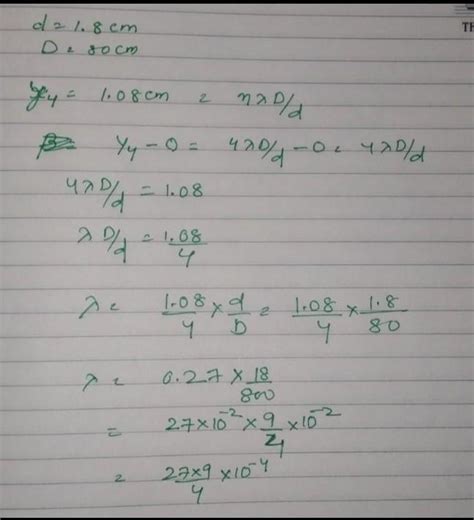 Th
d = 1.8 cm
D = 80cm
y₄ = 1.08cm = nλD/d
y₄ - 0 = 4λD/d - 0 = 4λD/d
4λD/d = 1.08
λD/d = 1.08/4
λ = 1.08/4 × d/D = 1.08/4 × 1.8/80
λ = 0.27 × 18/800
= 27×10⁻² × 9/4 × 10⁻²
= 27×9/4 × 10⁻⁴